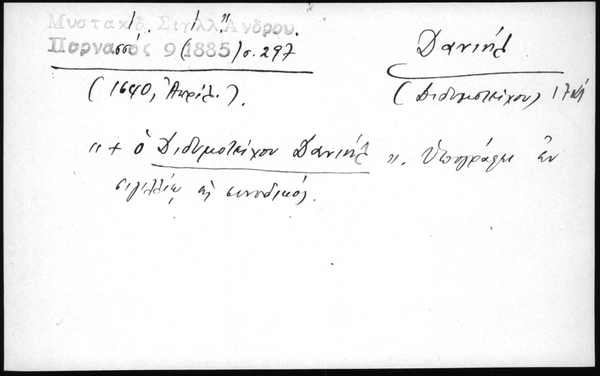 Μυστακίδ. Σιγιλλ. Ἄνδρου.
Παρνασσός 9 (1885) σ. 297
Δανιήλ
(1640, Ἀπρίλ.).
(Διδυμοτείχου)
"+ ὁ Διδυμοτείχου Δανιήλ". Ὑπογράφει ἐν
σιγιλλίῳ ὡς συνοδικός.